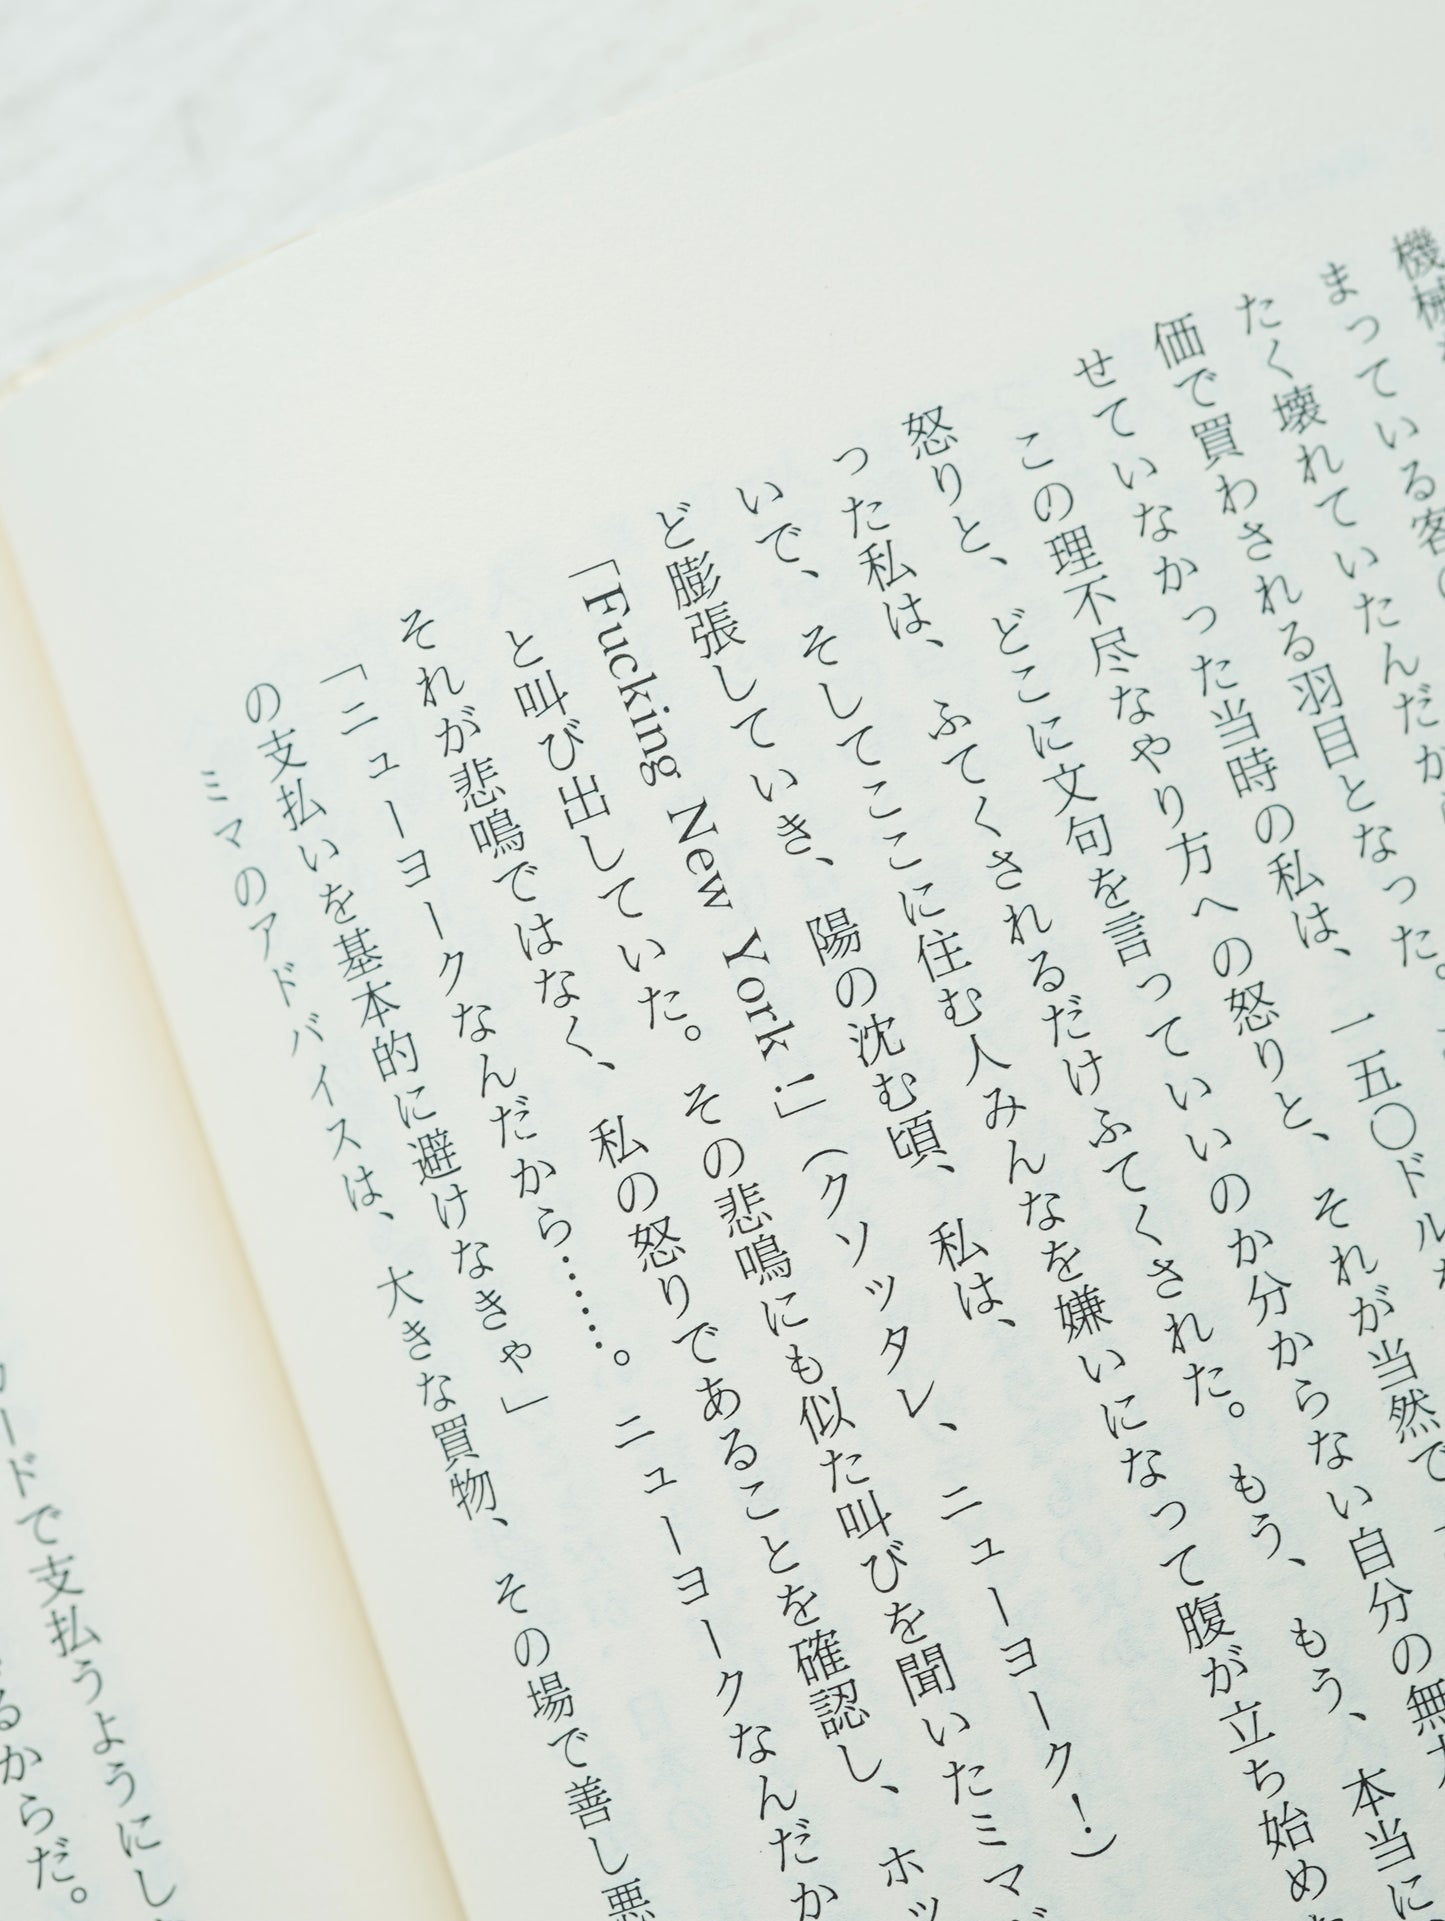 機械
まっている客の
たく壊れていたんだが
価で買わされる羽目となった。
せていなかった当時の私は、一五〇ドル
この理不尽なやり方への怒りと、それが当然で
怒りと、どこに文句を言っていいのか分からない自分の無力
った私は、ふてくされるだけふてくされた。もう、もう、本当に
いで、そしてここに住む人みんなを嫌いになって腹が立ち始め
ど膨張していき、陽の沈む頃、私は、
「Fucking New York!」(クソッタレ、ニューヨーク!)
と叫び出していた。その悲鳴にも似た叫びを聞いたミマ
それが悲鳴ではなく、私の怒りであることを確認し、ホッ
「ニューヨークなんだから……。ニューヨークなんだか
の支払いを基本的に避けなきゃ」
ミマのアドバイスは、大きな買物、その場で善し悪
カードで支払うようにし
るからだ。